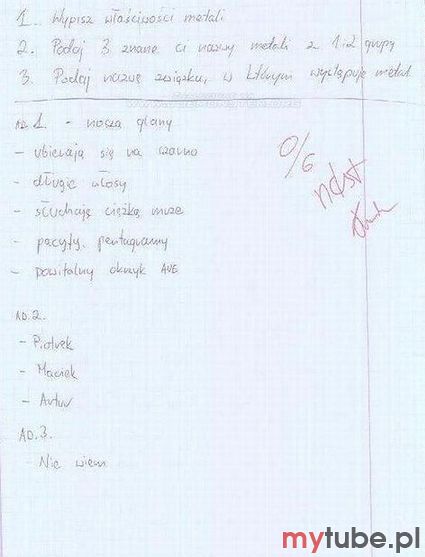 1. Wypisz właściwości metali
2. Podaj 3 znane ci nazwy metali z 1 i 2 grupy
3. Podaj nazwę związku, w którym występuje metal
AD.1. - noszą glany
- ubierają się na czarno
- długie włosy
- słuchają ciężką muze
- pacyfy, pentagramy
- powitalny okrzyk AVE
0/6
ndst
AD.2.
- Piotrek
- Maciek
- Artur
AD.3.
- Nie wiem
mytube.pl